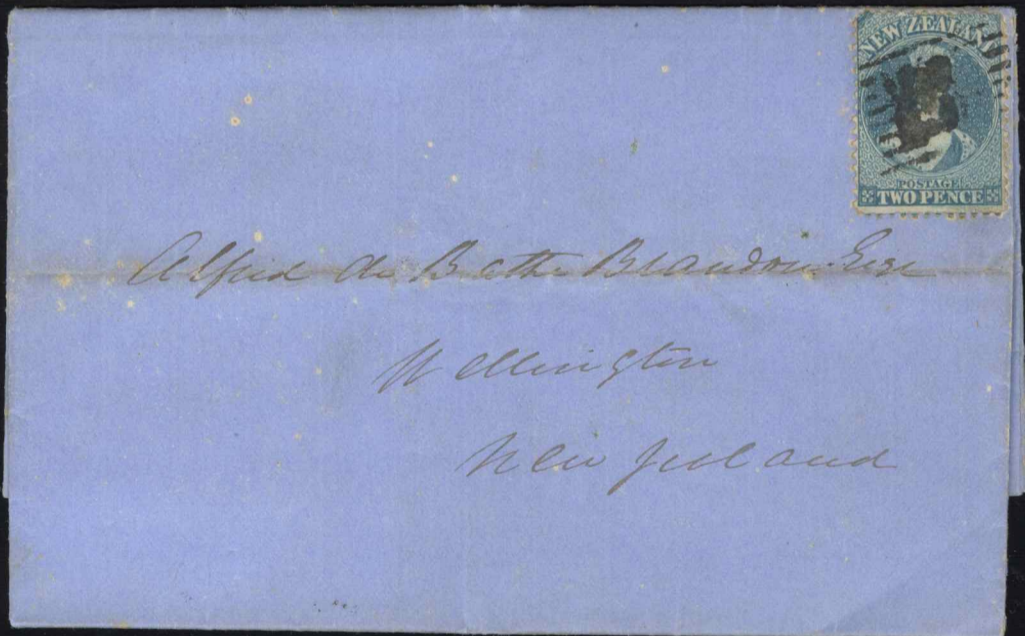 NEW ZEALAND
POSTAGE
TWO PENCE
Alfred de Bathe Brandon Esqr
Wellington
New Zealand